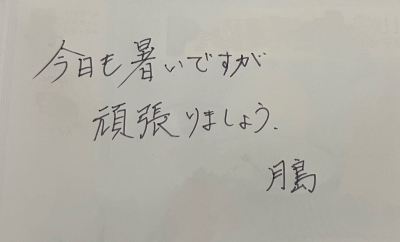 今日も暑いですが
頑張りましょう.
月島